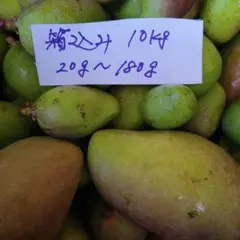 箱込み 10kg
20g～180g